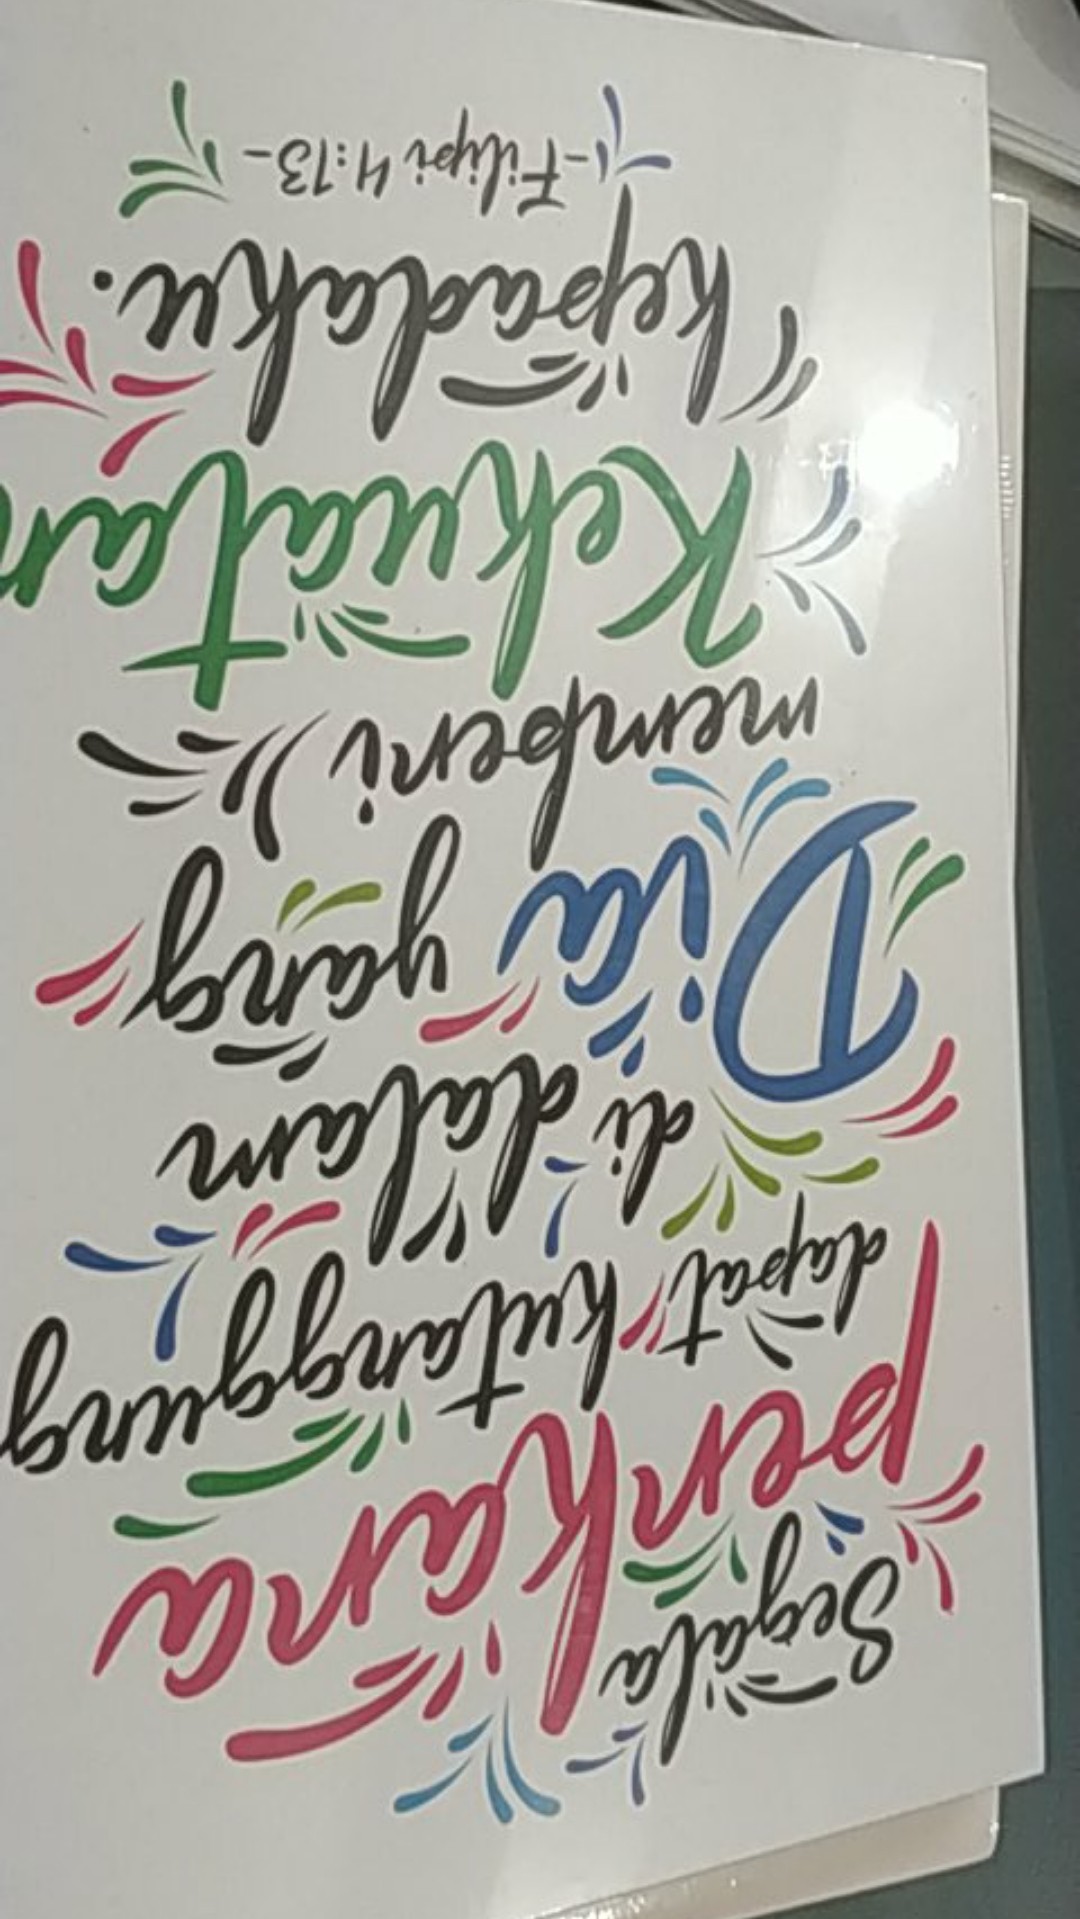 Segala
perkara
dapat kutanggung
di dalam
Dia yang
memberi
Kekuatan
kepadaku.
-Filipi 4:13-